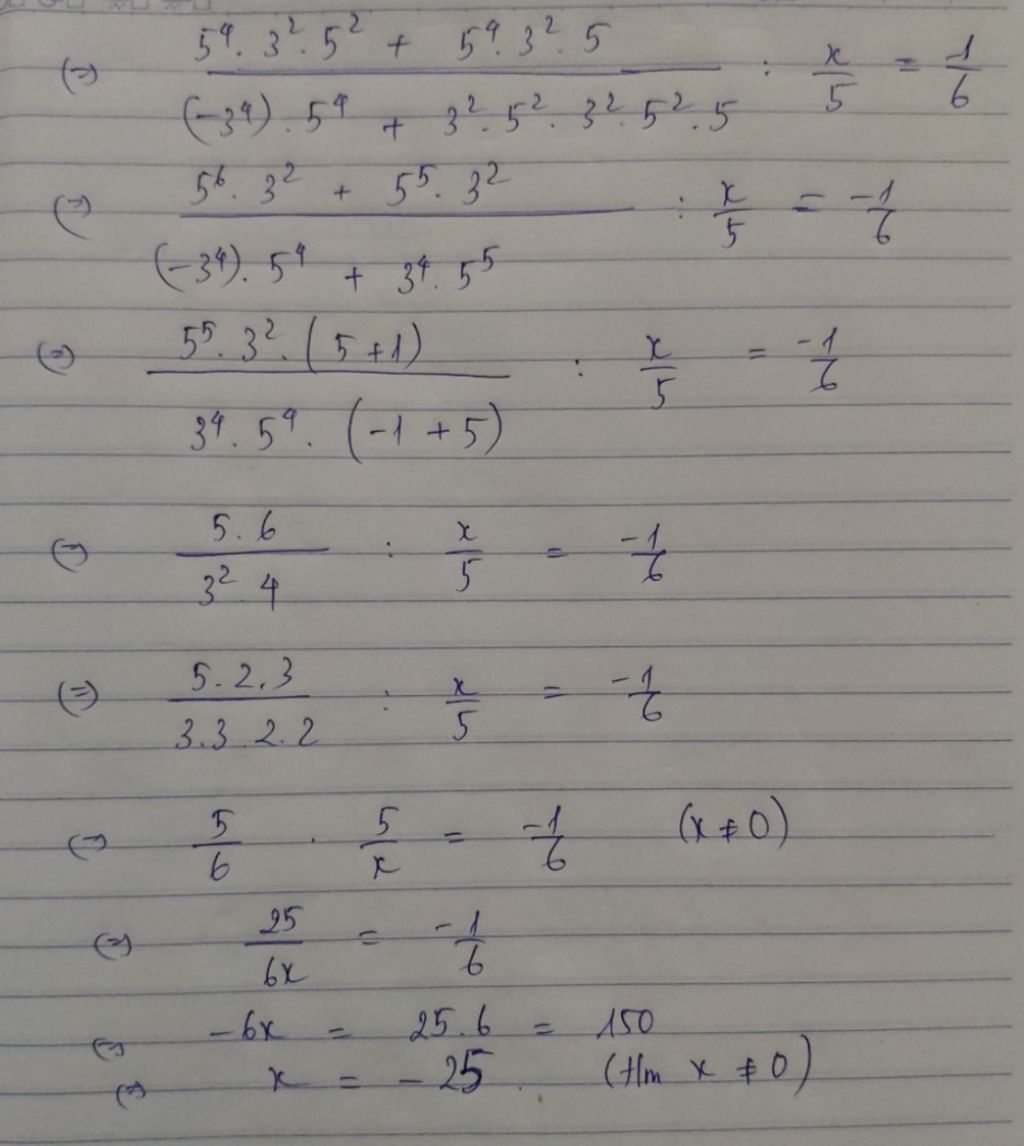 (=) (5⁴. 3². 5² + 5⁴. 3². 5) / ((-3⁴). 5⁴ + 3². 5². 3². 5². 5) : x/5 = 1/6
(=) (5⁶. 3² + 5⁵. 3²) / ((-3⁴). 5⁴ + 3⁴. 5⁵) : x/5 = -1/6
(=) (5⁵. 3². (5 +1)) / (3⁴. 5⁴. (-1 + 5)) : x/5 = -1/6
(=) (5.6) / (3² 4) : x/5 = -1/6
(=) (5.2.3) / (3.3.2.2) : x/5 = -1/6
(=) 5/6 . 5/x = -1/6 (x ≠ 0)
(=) 25/6x = -1/6
(=) -6x = 25.6 = 150
(=) x = -25 (t/m x ≠ 0)